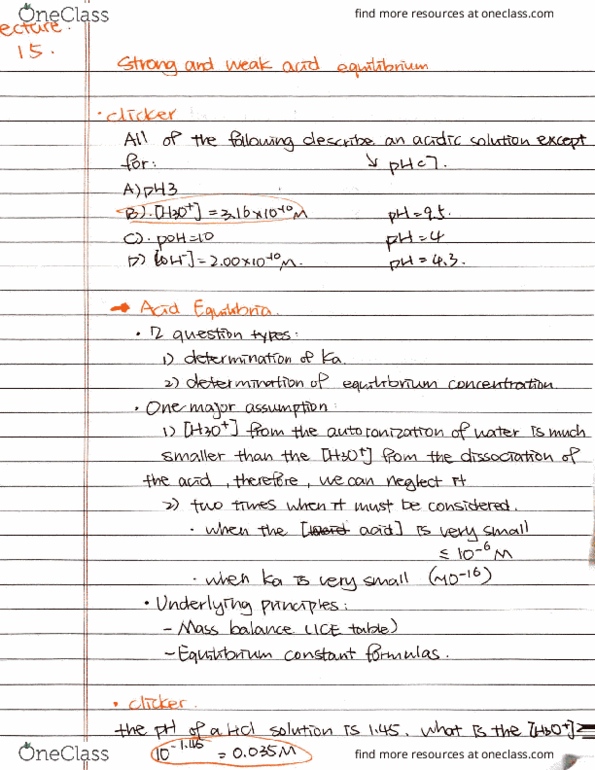 OneClass
find more resources at oneclass.com
ecture.
15.
Strong and weak acid equilibrium
• clicker
All of the following describe an acidic solution except
for: ↘ pH<7.
A) pH3
B). [H3O+] = 3.16×10^-10 M pH=9.5.
C). pOH=10 pH=4
D) [OH-] = 2.00×10^-10 M. pH=4.3.
→ Acid Equilibria.
• 2 question types:
1) determination of Ka.
2) determination of equilibrium concentration.
• One major assumption:
1) [H3O+] from the autoionization of water is much
smaller than the [H3O+] from the dissociation of
the acid, therefore, we can neglect it
2) two times when it must be considered.
• when the [acid] is very small
≤ 10^-6 M
• when Ka is very small (~10^-16)
• Underlying principles:
- Mass balance (ICE table)
- Equilibrium constant formulas.
• clicker.
the pH of a HCl solution is 1.45. what is the [H3O+]=
10^-1.45 = 0.035M
OneClass
find more resources at oneclass.com